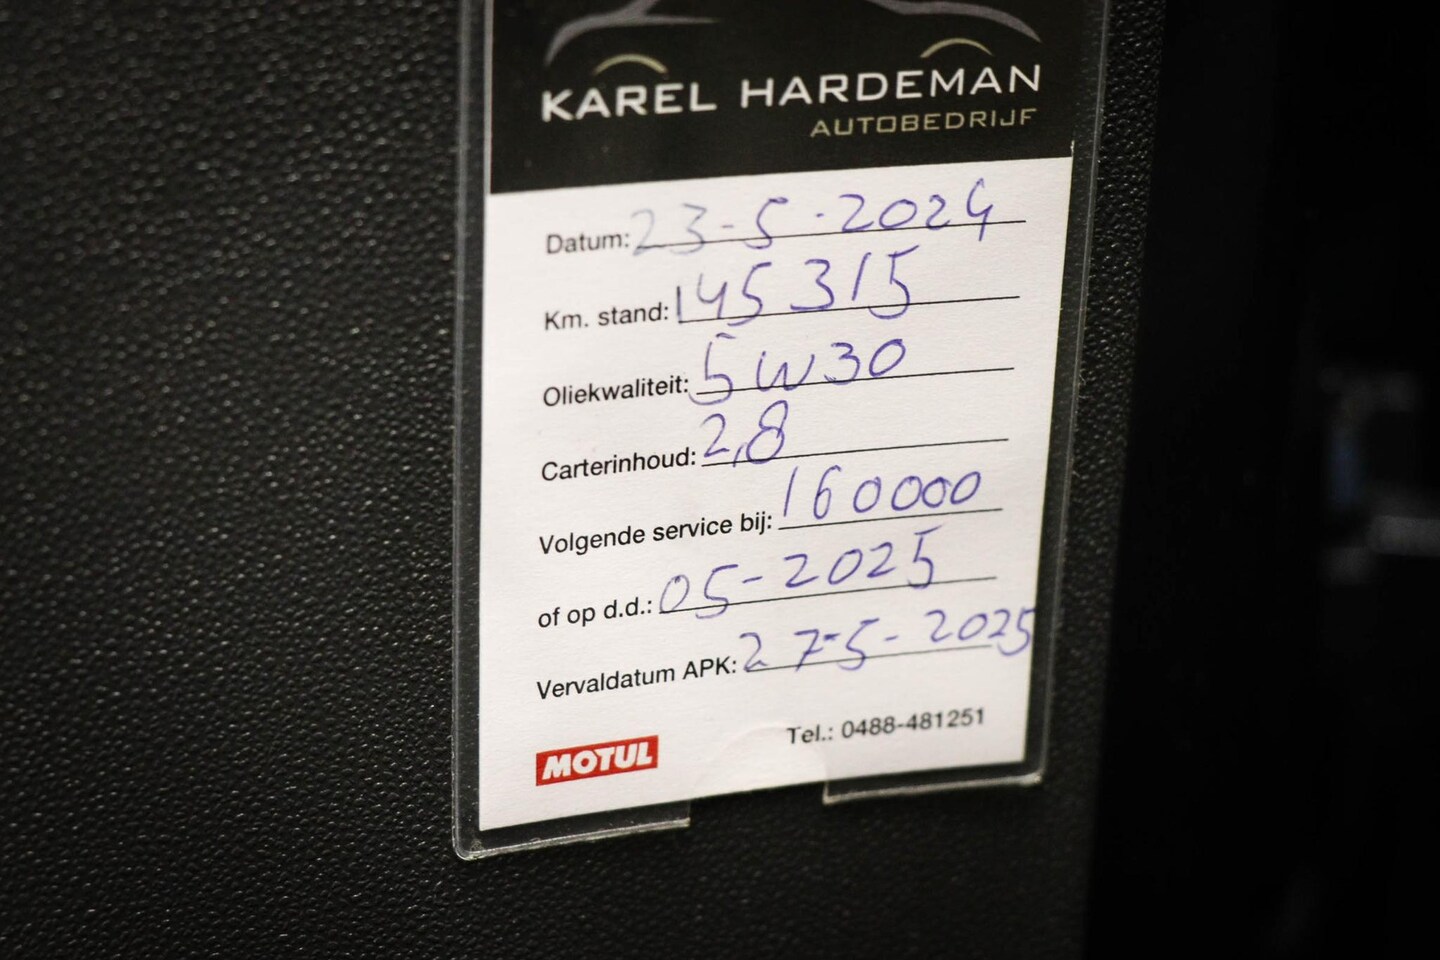 KAREL HARDEMAN
AUTOBEDRIJF
Datum: 23-5-2024
Km. stand: 145315
Oliekwaliteit: 5W30
Carterinhoud: 2,8
Volgende service bij: 160000
of op d.d.: 05-2025
Vervaldatum APK: 27-5-2025
MOTUL Tel.: 0488-481251